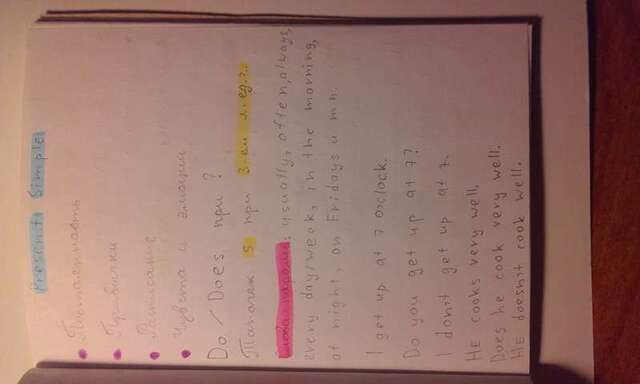 Present Simple
• Постоянность
• Привычки
• Расписание
• Чувства и эмоции
Do / Does при ?
Глагол s при 3-ем л. ед.ч.
Слова-пароли: usually, often, always,
every day/week, in the morning,
at night, on Fridays и тп.
I get up at 7 o'clock.
Do you get up at 7?
I don't get up at 7.
HE cooks very well.
Does he cook very well.
HE doesn't cook well.